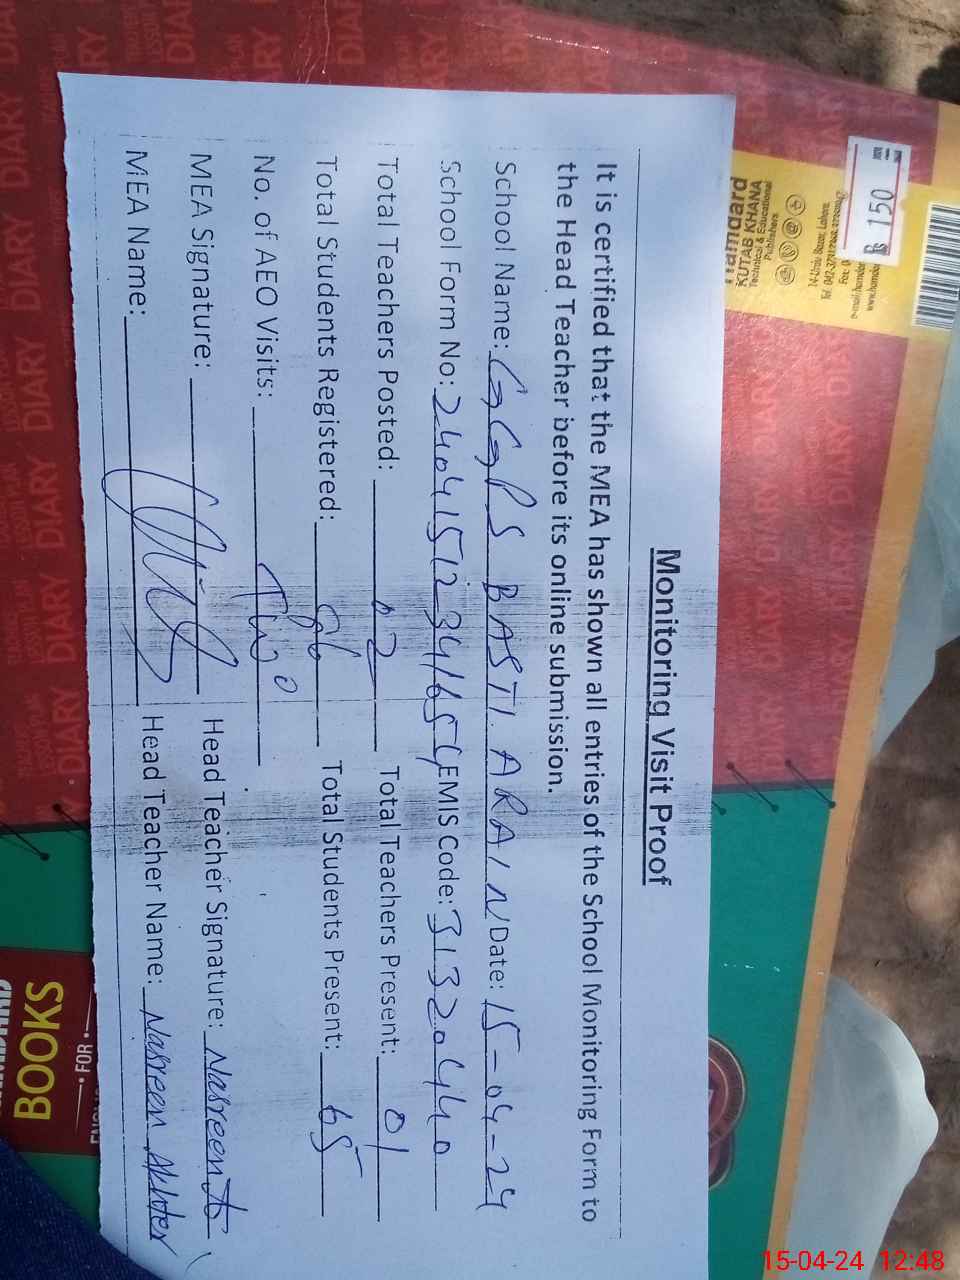 Monitoring Visit Proof
It is certified that the MEA has shown all entries of the School Monitoring Form to
the Head Teacher before its online submission.
School Name: GGPS BASTI ARAIN Date: 15-04-24
School Form No: EMIS Code: 31320440
Total Teachers Posted: 02 Total Teachers Present: 01
Total Students Registered: 86 Total Students Present: 65
No. of AEO Visits: Two
MEA Signature: Head Teacher Signature: Nasreen A
MEA Name: Head Teacher Name: Nasreen Akhter
150
KUTAB KHANA
DIARY DIARY DIARY DIARY DIARY DIARY
BOOKS
FOR
15-04-24 12:48